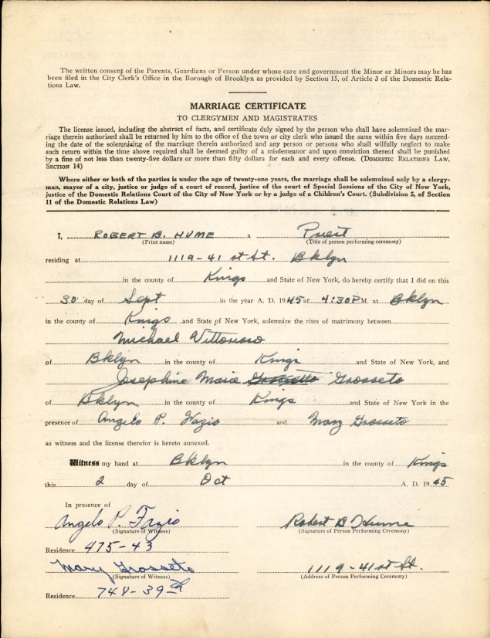 The written consent of the Parents, Guardians or Person under whose care and government the Minor or Minors may be has
been filed in the City Clerk's Office in the Borough of Brooklyn as provided by Section 15, of Article 3 of the Domestic Rela-
tions Law.
MARRIAGE CERTIFICATE
TO CLERGYMEN AND MAGISTRATES
The license issued, including the abstract of facts, and certificate duly signed by the person who shall have solemnized the mar-
riage therein authorized shall be returned by him to the office of the town or city clerk who issued the same within five days succeed-
ing the date of the solemnizing of the marriage therein authorized and any person or persons who shall willfully neglect to make
such return within the time above required shall be deemed guilty of a misdemeanor and upon conviction thereof shall be punished
by a fine of not less than twenty-five dollars or more than fifty dollars for each and every offense. (DOMESTIC RELATIONS LAW,
SECTION 14)
Where either or both of the parties is under the age of twenty-one years, the marriage shall be solemnized only by a clergy-
man, mayor of a city, justice or judge of a court of record, justice of the court of Special Sessions of the City of New York,
justice of the Domestic Relations Court of the City of New York or by a judge of a Children's Court. (Subdivision 5, of Section
11 of the Domestic Relations Law)
I, ROBERT B. HUME a Priest
(Print name) (Title of person performing ceremony)
residing at 1119-41st St. Bklyn
in the county of Kings and State of New York, do hereby certify that I did on this
30 day of Sept in the year A. D. 1945 at 4:30 P.M. at Bklyn
in the county of Kings and State of New York, solemnize the rites of matrimony between
Michael
of Bklyn in the county of Kings and State of New York, and
Josephine Marie Grosseto
of Bklyn in the county of Kings and State of New York in the
presence of Angelo P. and Mary Grosseto
as witness and the license therefor is hereto annexed.
Witness my hand at Bklyn in the county of Kings
this 2 day of Oct A. D. 1945
In presence of
Angelo P. Robert B Hume
(Signature of Witness) (Signature of Person Performing Ceremony)
Residence 475-43
Mary Grosseto 1119-41st St.
(Signature of Witness) (Address of Person Performing Ceremony)
Residence 748-39th